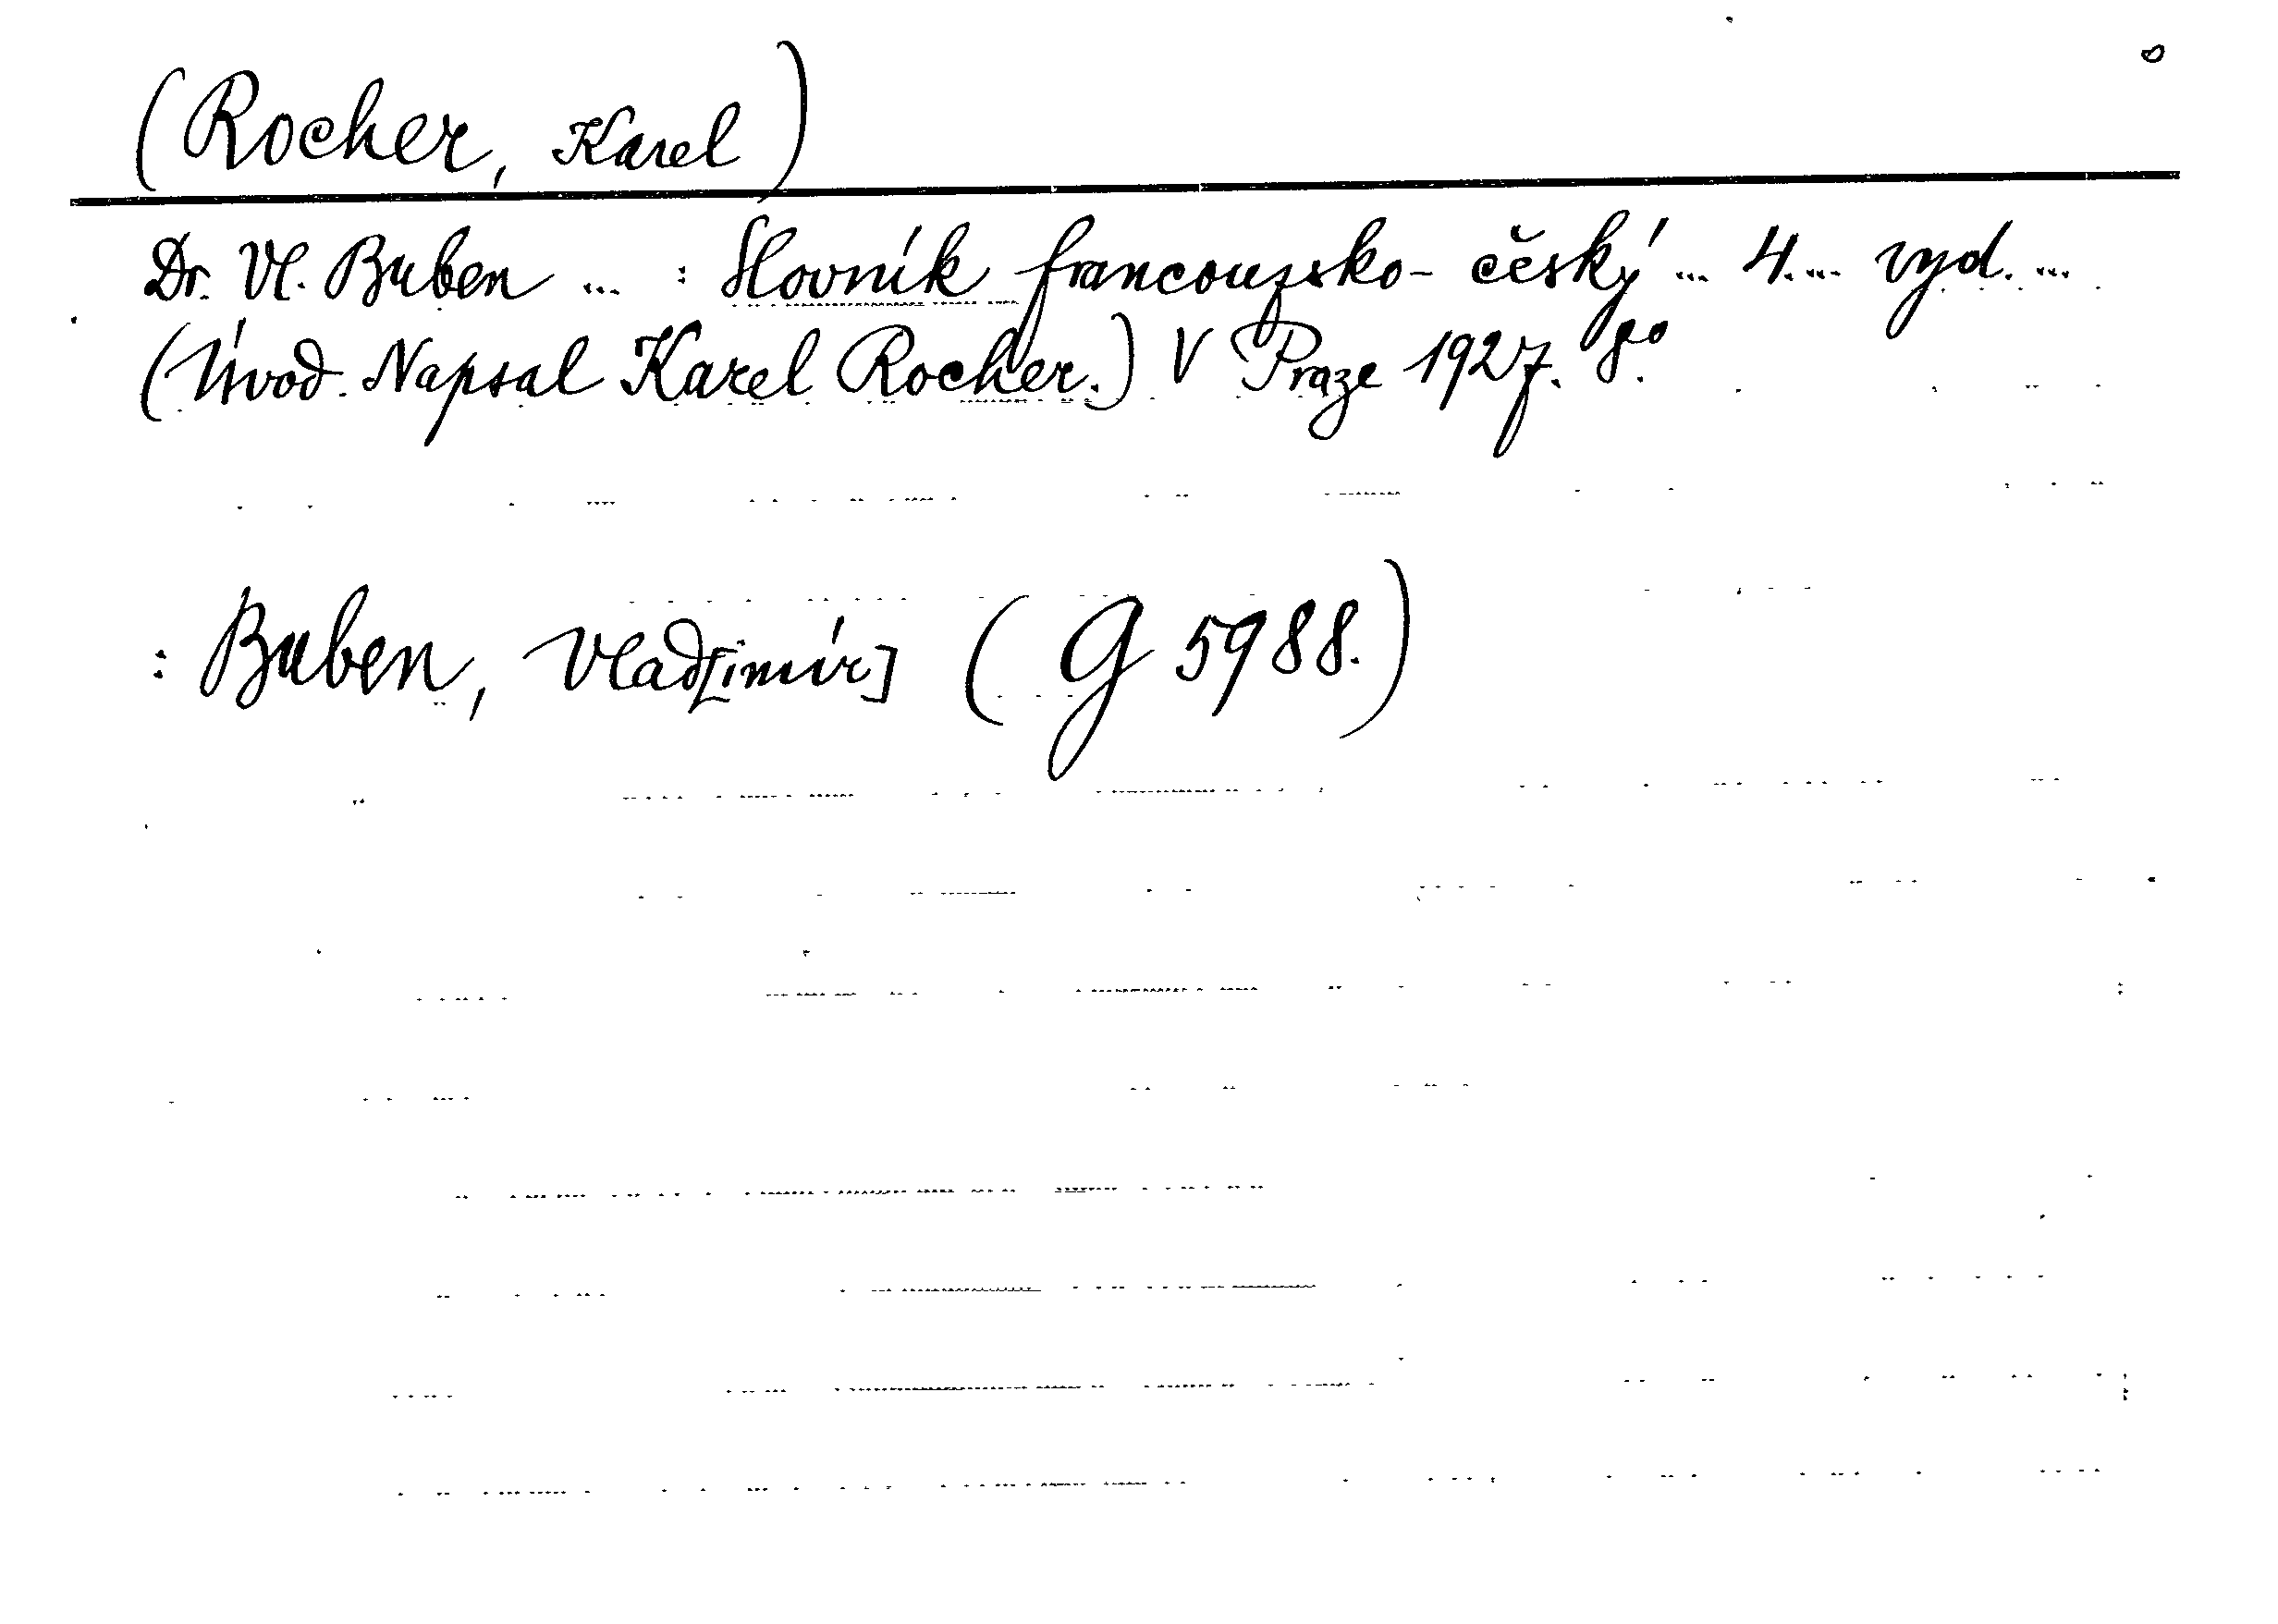 (Rocher, Karel)
Dr. Vl. Buben ... : Slovník francouzsko-český ... 4. ... vyd. ...
(Úvod. Napsal Karel Rocher.) V Praze 1927. 8°.
: Buben, Vlad[imír] (G 5988.)